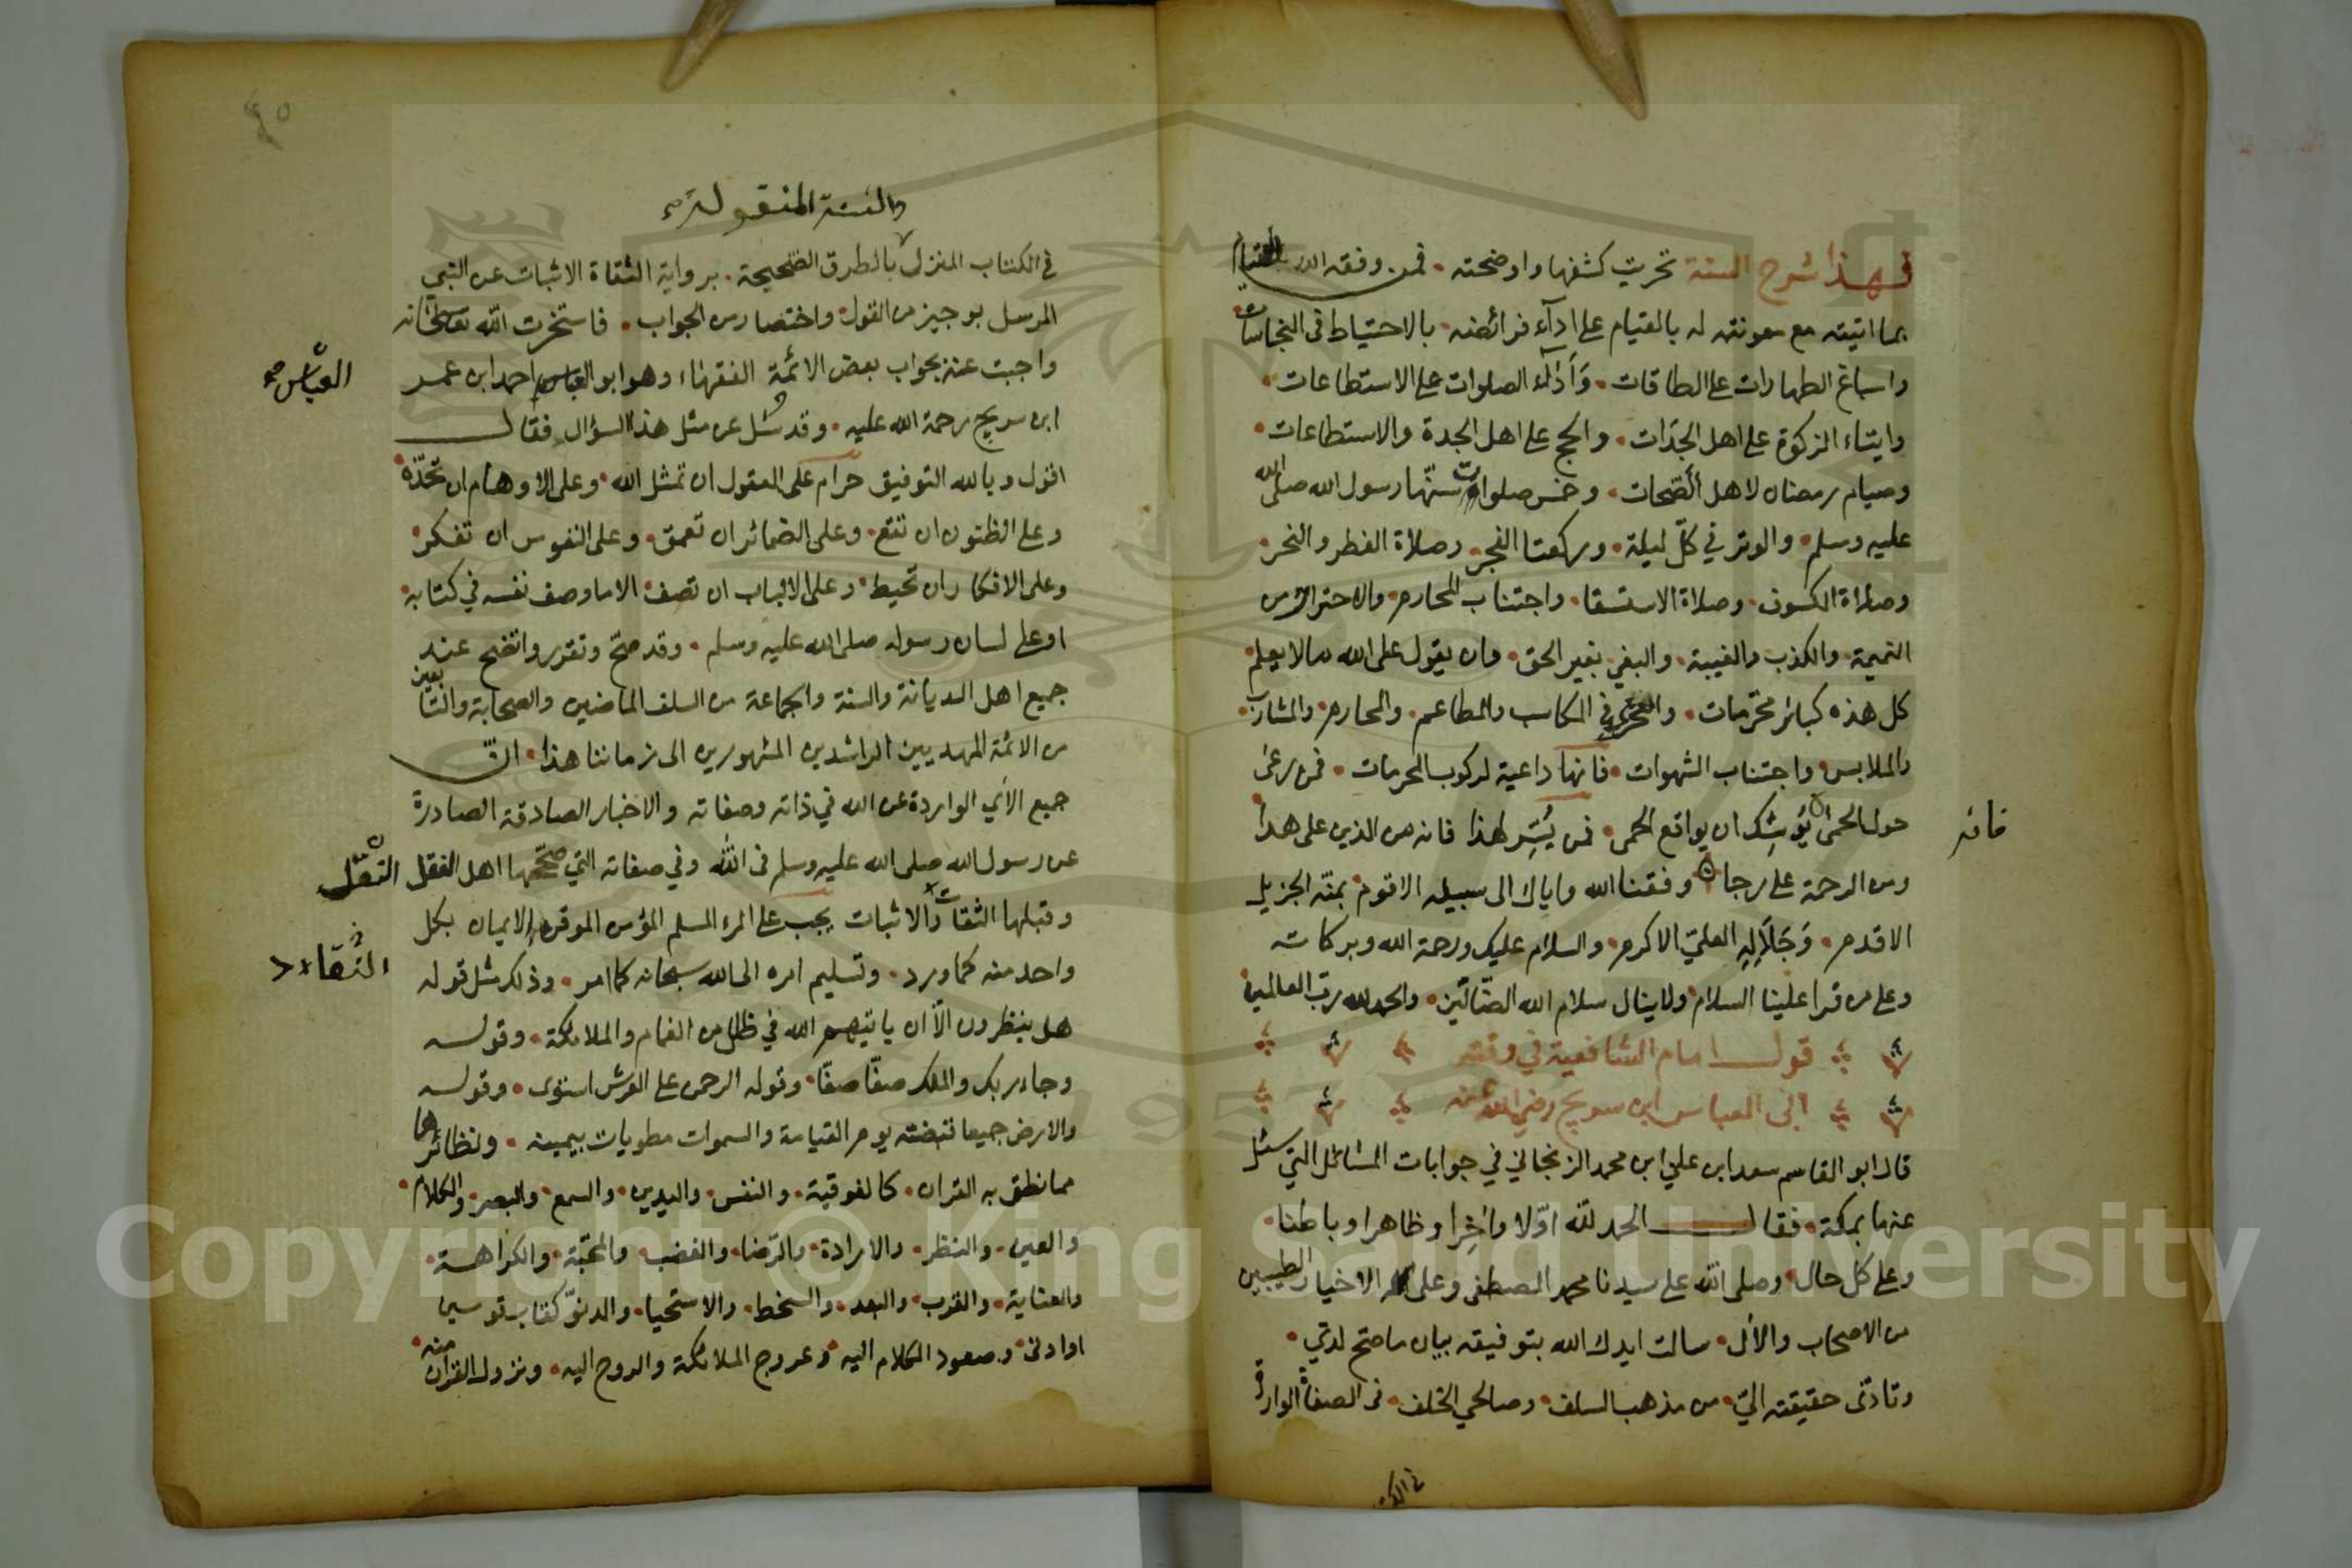 فهذا شرح السنة تحريت كشفها واوضحته . فمن وفقه الله للقيام
بما ابنته مع معونته له بالقيام على ادآء فرائضه بالاحتياط في النجاسات
واسباغ الطهارات على الطاقات . وَأدآء الصلوات على الاستطاعات .
وايتاء الزكوة على اهل الجدات . والحج على اهل الجدة والاستطاعات .
وصيام رمضان لاهل الصّحات . وخمس صلوات سنّها رسول الله صلى الله
عليه وسلم . والوتر في كلّ ليلة . وركعتا الفجر . وصلاة الفطر والنحر .
وصلاة الكسوف . وصلاة الاستسقا . واجتناب المحارم . والاحتراز من
النميمة . والكذب والغيبة . والبغي بغير الحق . وان يقول على الله ما لا يعلم
كل هذه كبائر محرّمات . والتحري في المكاسب والمطاعم . والمحارم والمشارب .
والملابس واجتناب الشهوات . فانها داعية لركوب المحرمات . فمن رعى
حول الحمى يُوشِك ان يواقع الحمى . فمن يُسِّر لهذا فانه من الدين على هدا
فانه
ومن الرحمة على رجا . وفقنا الله واياك الى سبيله الاقوم بمنّه الجزيل
الاقدم . وَجَلَالِهِ العليّ الاكرم . والسلام عليك ورحمة الله وبركاته
وعلى من قرا علينا السلام ولا ينال سلام الله الضّالّين . والحمد لله ربّ العالمين
قول امام الشافعية في وقته
ابى العباس ابن سريج رضي الله عنه
قال ابو القاسم سعد ابن علي ابن محمد الزنجاني في جوابات المسائل التي سئل
عنها بمكة . فقال الحمد للّه اوّلا وآخِرا وظاهرا وباطنا .
وعلى كل حال وصلى اللّه على سيدنا محمد المصطفى وعلى الاخيار الطيبين
من الاصحاب والآل . سالت ايدك الله بتوفيقه بيان ما صح لديّ .
وتادّى حقيقته اليّ . من مذهب السلف . وصالحي الخلف . في الصفاة الواردة
في الكتاب
والسنة المنقولة صح
في الكتاب المنزل بالطرق الصّحيحة . برواية الثقاة الاثبات عن النبي
المرسل بوجيز من القول واختصار من الجواب . فاستخرت اللّه سبحانه
واجبت عنه بجواب بعض الائمة الفقهاء وهو ابو العباس احمد ابن عمر
العبّاس صح
ابن سريج رحمة الله عليه . وقد سُئل عن مثل هذا السؤال فقال
اقول وبالله التوفيق حرام على العقول ان تمثل الله . وعلى الاوهام ان تحدّه .
وعلى الظنون ان تقع . وعلى الضمائر ان تعمق . وعلى النفوس ان تفكر .
وعلى الافكار ان تحيط . وعلى الالباب ان تصف . الا ما وصف نفسه في كتابه .
او على لسان رسوله صلى الله عليه وسلم . وقد صحّ وتقرر واتضح عند
جميع اهل الديانة والسنة والجماعة من السلف الماضين والصحابة والتابعين
من الائمة المهديين الراشدين المشهورين الى زماننا هذا . انّ
جميع الآي الواردة عن الله في ذاته وصفاته والاخبار الصادقة الصادرة
عن رسول الله صلى الله عليه وسلم في اللّه وفي صفاته التي صحّحها اهل النقل
النقل
وقبلها الثقات والاثبات يجب على المرء المسلم المؤمن الموقن الايمان بكل
النُقاد
واحد منه كما ورد . وتسليم امره الى الله سبحانه كما امر . وذلك مثل قوله
هل ينظرون الّا ان ياتيهم الله في ظلل من الغمام والملائكة . وقوله
وجاء ربك والملك صفّا صفّا . وقوله الرحمن على العرش استوى . وقوله
والارض جميعا قبضته يوم القيامة والسموات مطويات بيمينه . ونظائرها
مما نطق به القران . كالفوقية . والنفس . واليدين . والسمع . والبصر . والكلام .
والعين . والنظر . والارادة . والرّضا . والغضب والمحبّة . والكراهة .
والعناية . والقرب . والبعد . والسخط . والاستحيا . والدنوّ كقاب قوسين
او ادنى . وصعود الكلام اليه . وعروج الملائكة والروح اليه . ونزول القران منه .
Copyright © King Saud University
1957